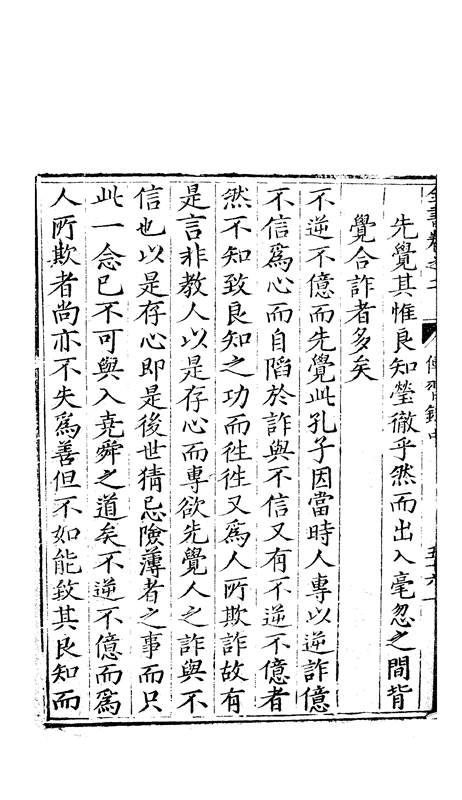 全書卷之二　傳習錄中　五十六
先覺其惟良知瑩徹乎然而出入毫忽之間背
覺合詐者多矣
不逆不億而先覺此孔子因當時人專以逆詐億
不信爲心而自陷於詐與不信又有不逆不億者
然不知致良知之功而徃徃又爲人所欺詐故有
是言非教人以是存心而專欲先覺人之詐與不
信也以是存心即是後世猜忌險薄者之事而只
此一念已不可與入堯舜之道矣不逆不億而爲
人所欺者尚亦不失爲善但不如能致其良知而